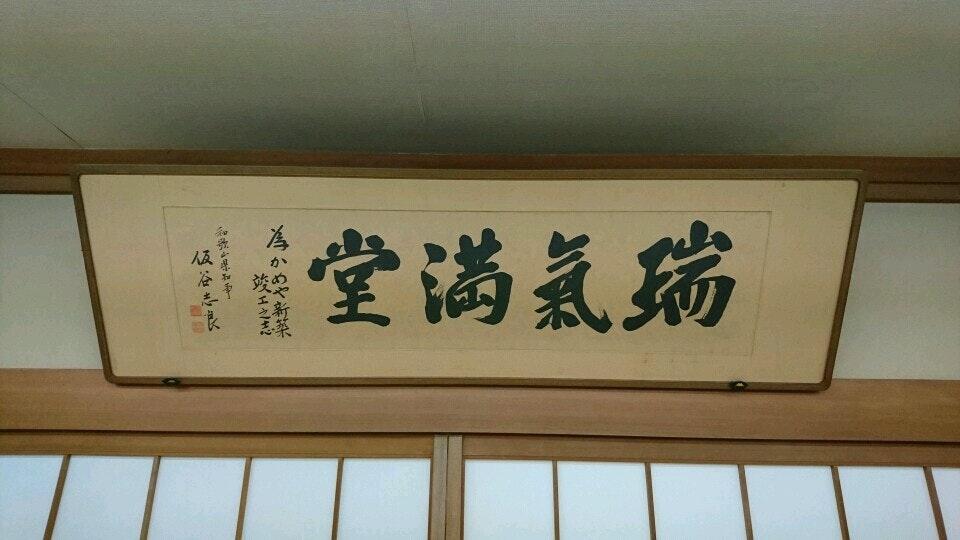 瑞氣満堂
為かめや新築
竣工之志
和歌山県知事
仮谷志良